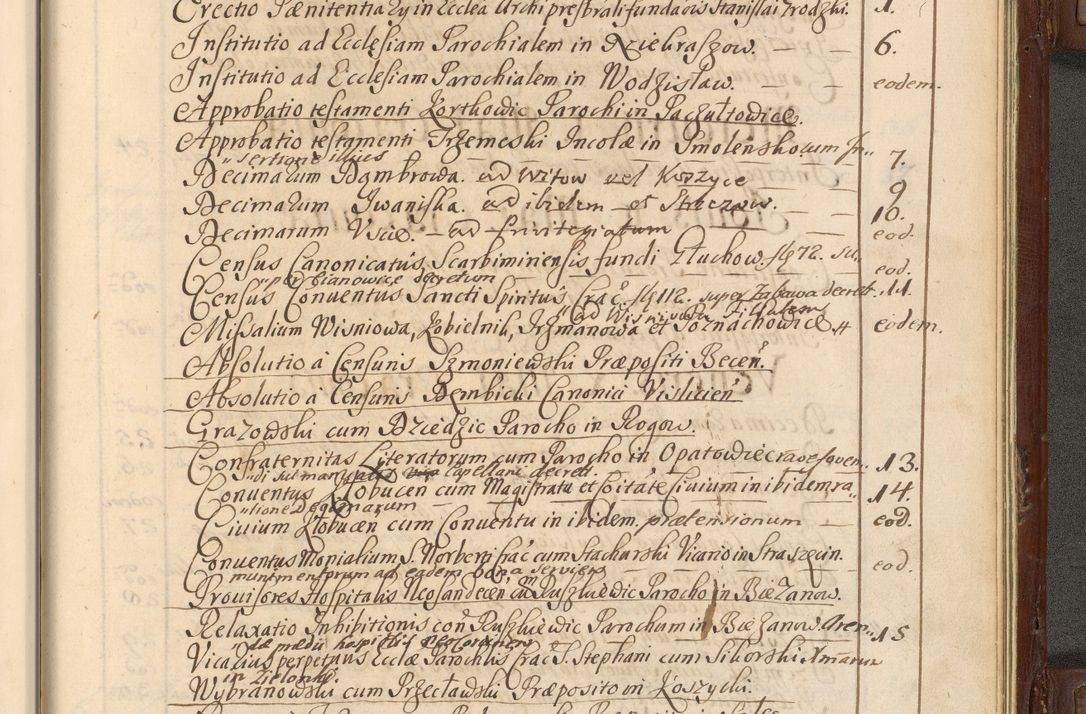 Erectio Pænitentiazy in Ecclea Archipresbrali fundaois Stanislai Zrodzki. 1.
Institutio ad Ecclesiam Parochialem in Dziebraszow. — — 6.
Institutio ad Ecclesiam Parochialem in Wodzisław. — — eodem.
Approbatio testamenti Kortkowic Parochi in Paczułtowice.
Approbatio testamenti Trzemeski Incolæ in Smolensko, cum In„ 7.
„sertione illius
Decimarum Dąmbrowa. ad Witow vel Koszyce — 9
Decimarum Iwaniska. ad ibidem et Strczow. — — 10.
Decimarum Uscie. — ad Privilegiatum — — eod.
Census Canonicatus Scarbimiriensis fundi Głuchow. fl 72. su„ eod.
„per Bianowice decretum
Census Conventus Sancti Spiritus Crac. fl 112. super Zabawa decret. 11.
ad Wisniowa Filialem
Missalium Wisniowa, Kobielnik, Trzmanowa et Poznachowice eodem.
Absolutio à Censuris Szmoniewski Præpositi Becen.
Absolutio à Censuris Dembicki Canonici Vislicien
Grazowski cum Dziedzic Parocho in Rogow.
Confraternitas Literatorum cum Parocho in Opatowiec 13.
Capellani decret.
Conventus Kłobucen cum Magistratu et Coitate Civium in ibidem ra„ 14.
„tione Decimarum
Civium Kłobucen cum Conventu in ibidem. prætensionum — eod.
Conventus Monialium S. Norberti Crac cum Stachurski Vicario in Straszęcin.
munimentorum ad eadem bona servien eod.
Provisores Hospitalis Neosandecen cum Ruszkiewic Parocho in Bieżanow.
Relaxatio Inhibitionis con Ruszkiewic Parochum in Bieżanow Aren„ 15
„dæ prædii hospitalis
Vicarius perpetuus Ecclæ Parochlis Crac S. Stephani cum Sikorski
in Zielonki.
Wybranowski cum Przecławski Præposito in Koszycki.